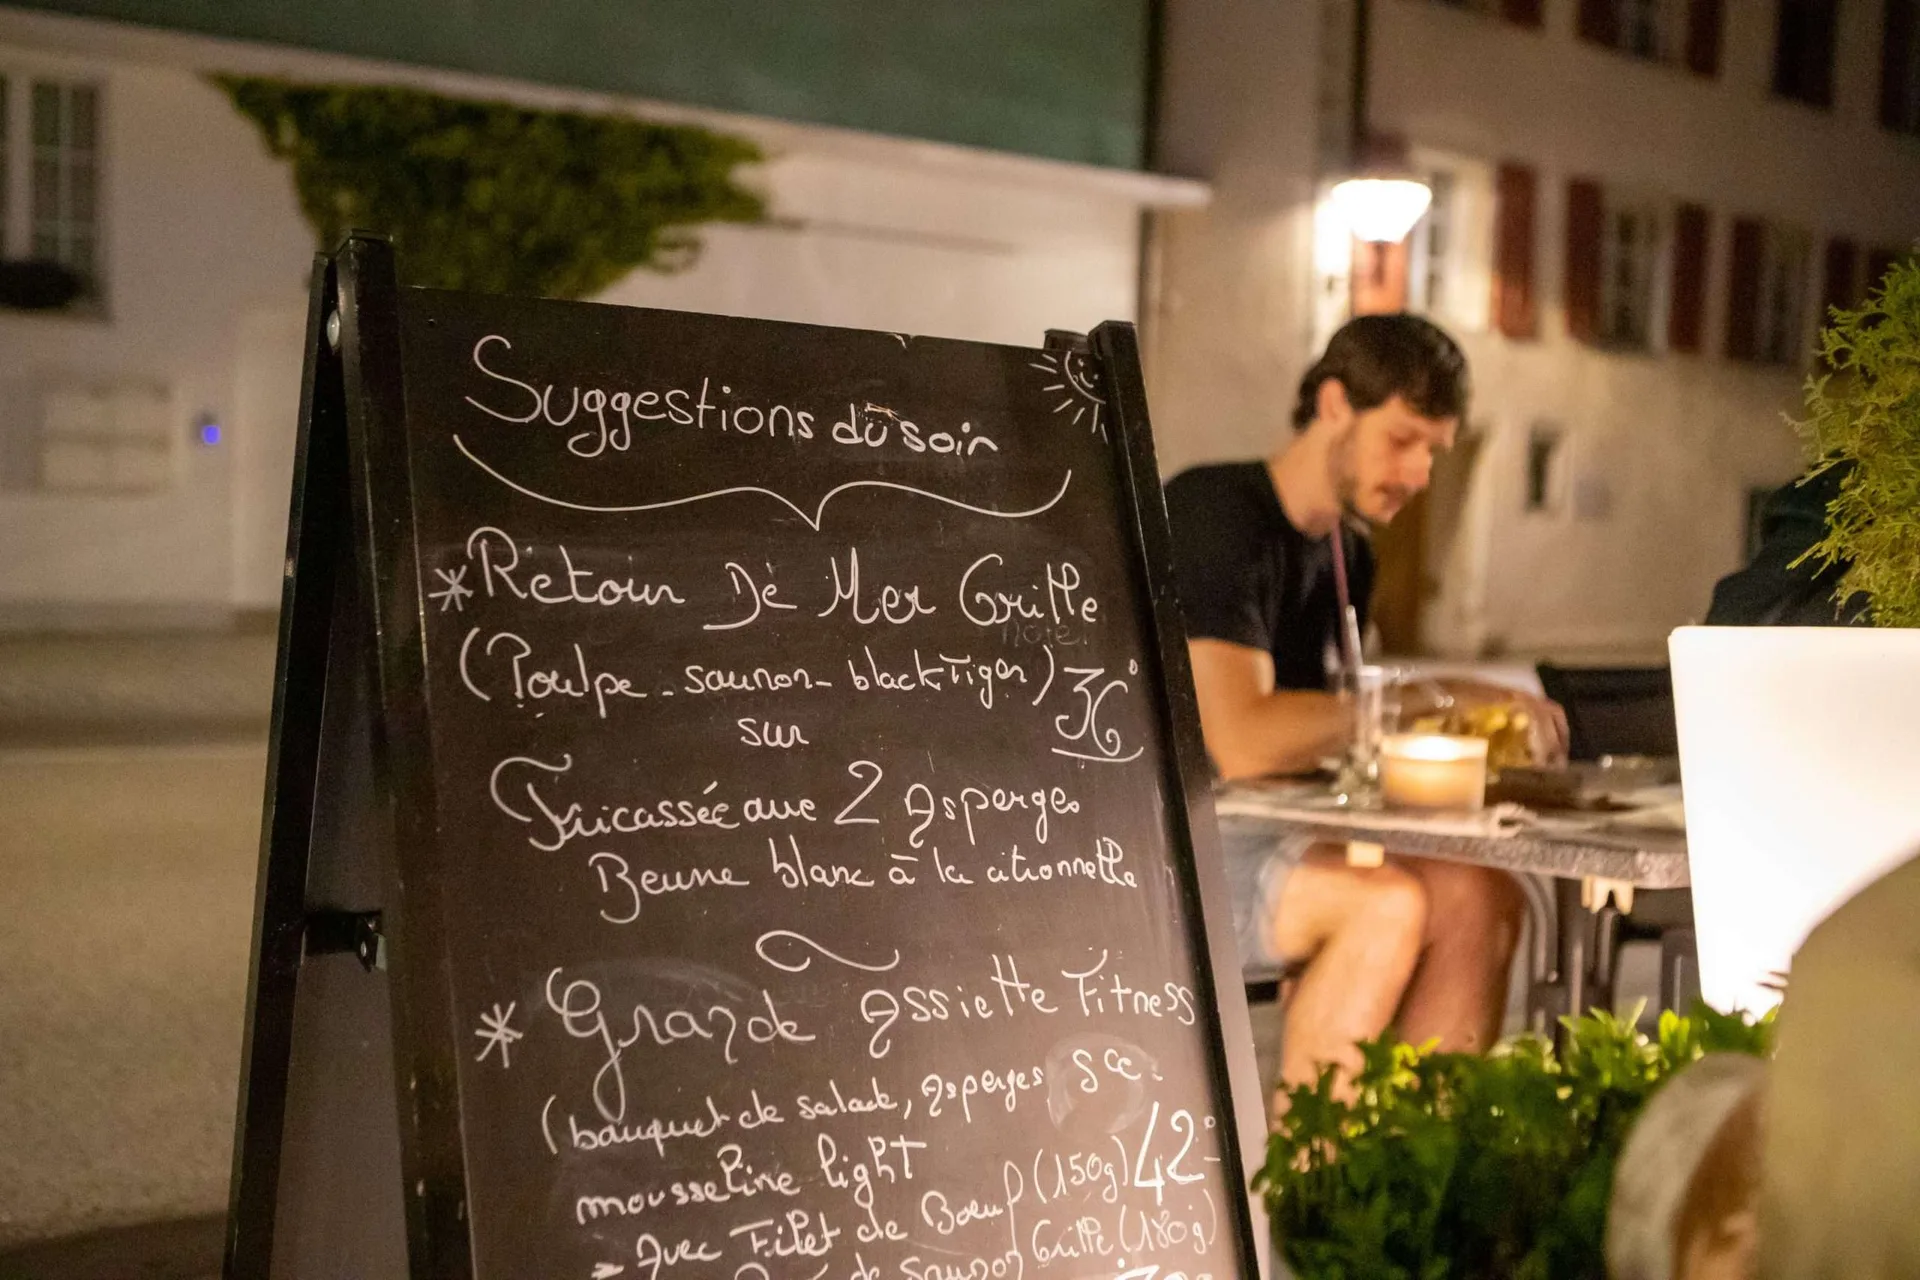 Suggestions du soir
*Retour De Mer Grillé
(Poulpe - saumon - black Tiger) 36
sur
Fricassée aux 2 Asperges
Beurre blanc à la citronnelle
* Grande Assiette Fitness
(bouquet de salade, asperges, sce.
mousseline light
- Avec Filet de Boeuf (150g) 42.-
de saumon Grillé (180g)